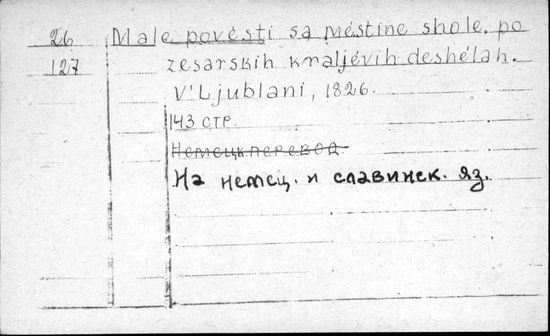 26 Male povésti sa méstine shole. po
127 zesarskih kraljévih deshélah.
V'Ljublani, 1826.
143 стр.
Немецк перевод.
На немец. и славинск. яз.